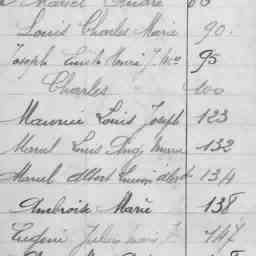 Marcel André 88
Louis Charles Marie 90.
Joseph Emile Henri J. Mie 95
Charles 100
Maurice Louis Joseph 123
Marcel Louis Aug. Marie 132
Marcel Albert Lucien 134
Ambroise Marie 138
Eugène Julien 147